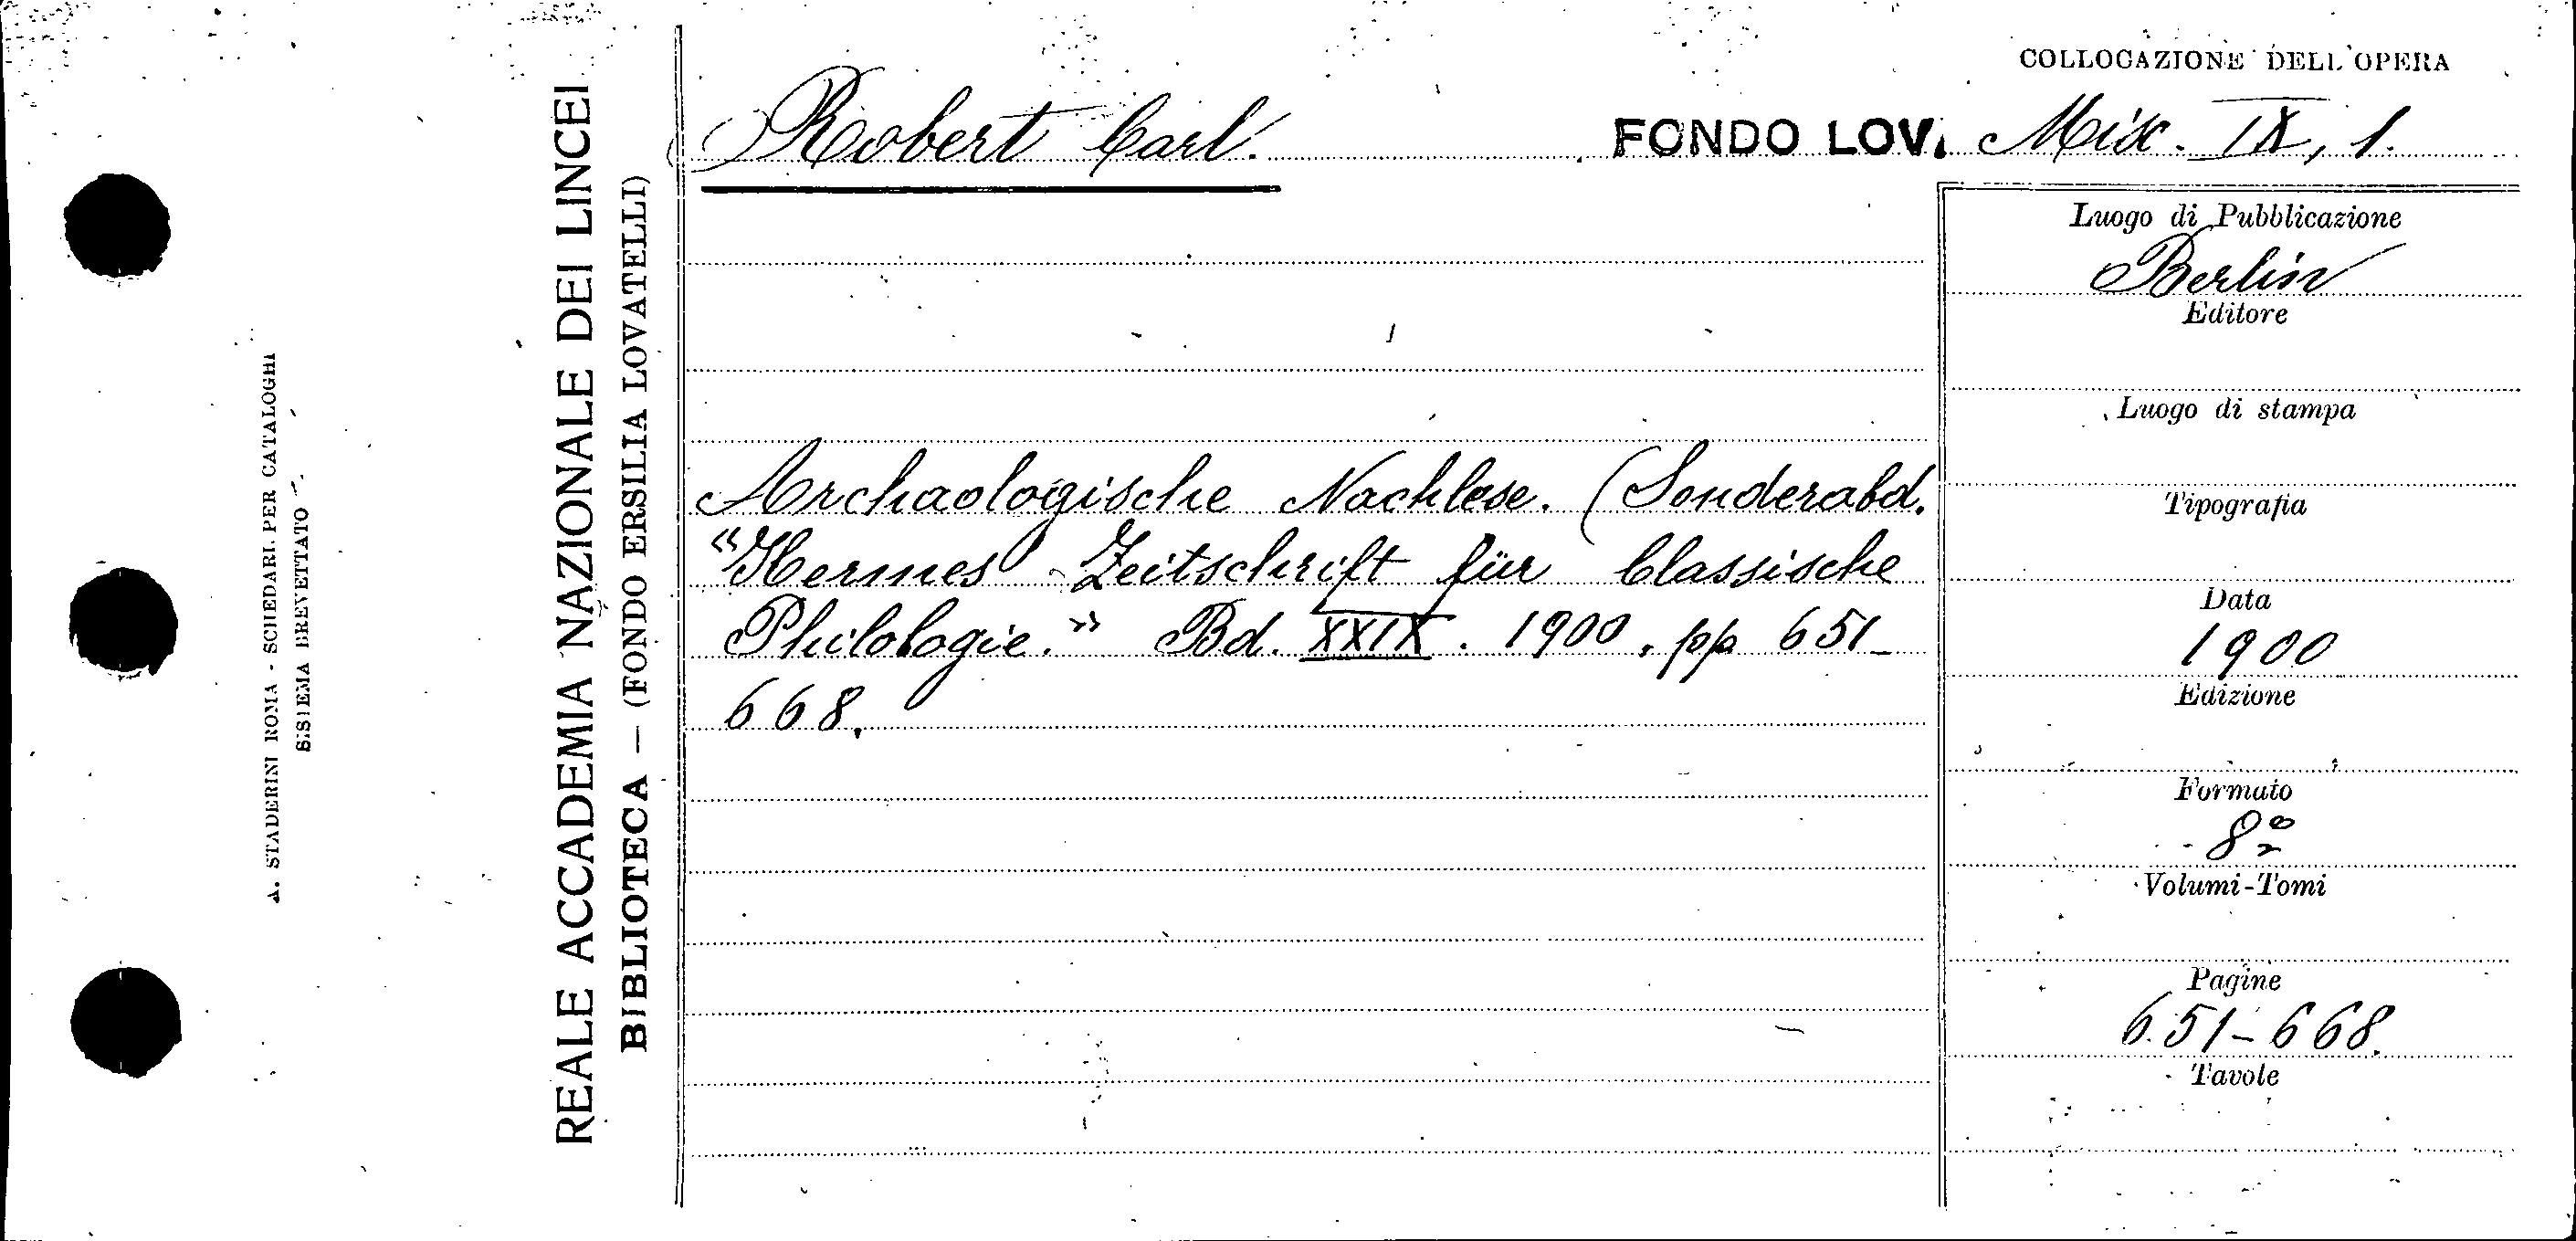 COLLOCAZIONE DELL'OPERA
Robert Carl.
FONDO LOV. Mix. IX, 1.
Archaologische Nachlese. (Sonderabd.
"Hermes - Zeitschrift für Classische
Philologie." Bd. XXIX. 1900. pp 651-
668.
Luogo di Pubblicazione
Berlin
Editore
Luogo di stampa
Tipografia
Data
1900
Edizione
Formato
8º
Volumi-Tomi
Pagine
651-668.
Tavole
REALE ACCADEMIA NAZIONALE DEI LINCEI
BIBLIOTECA — (FONDO ERSILIA LOVATELLI)
A. STADERINI ROMA - SCHEDARI PER CATALOGHI
SISTEMA BREVETTATO